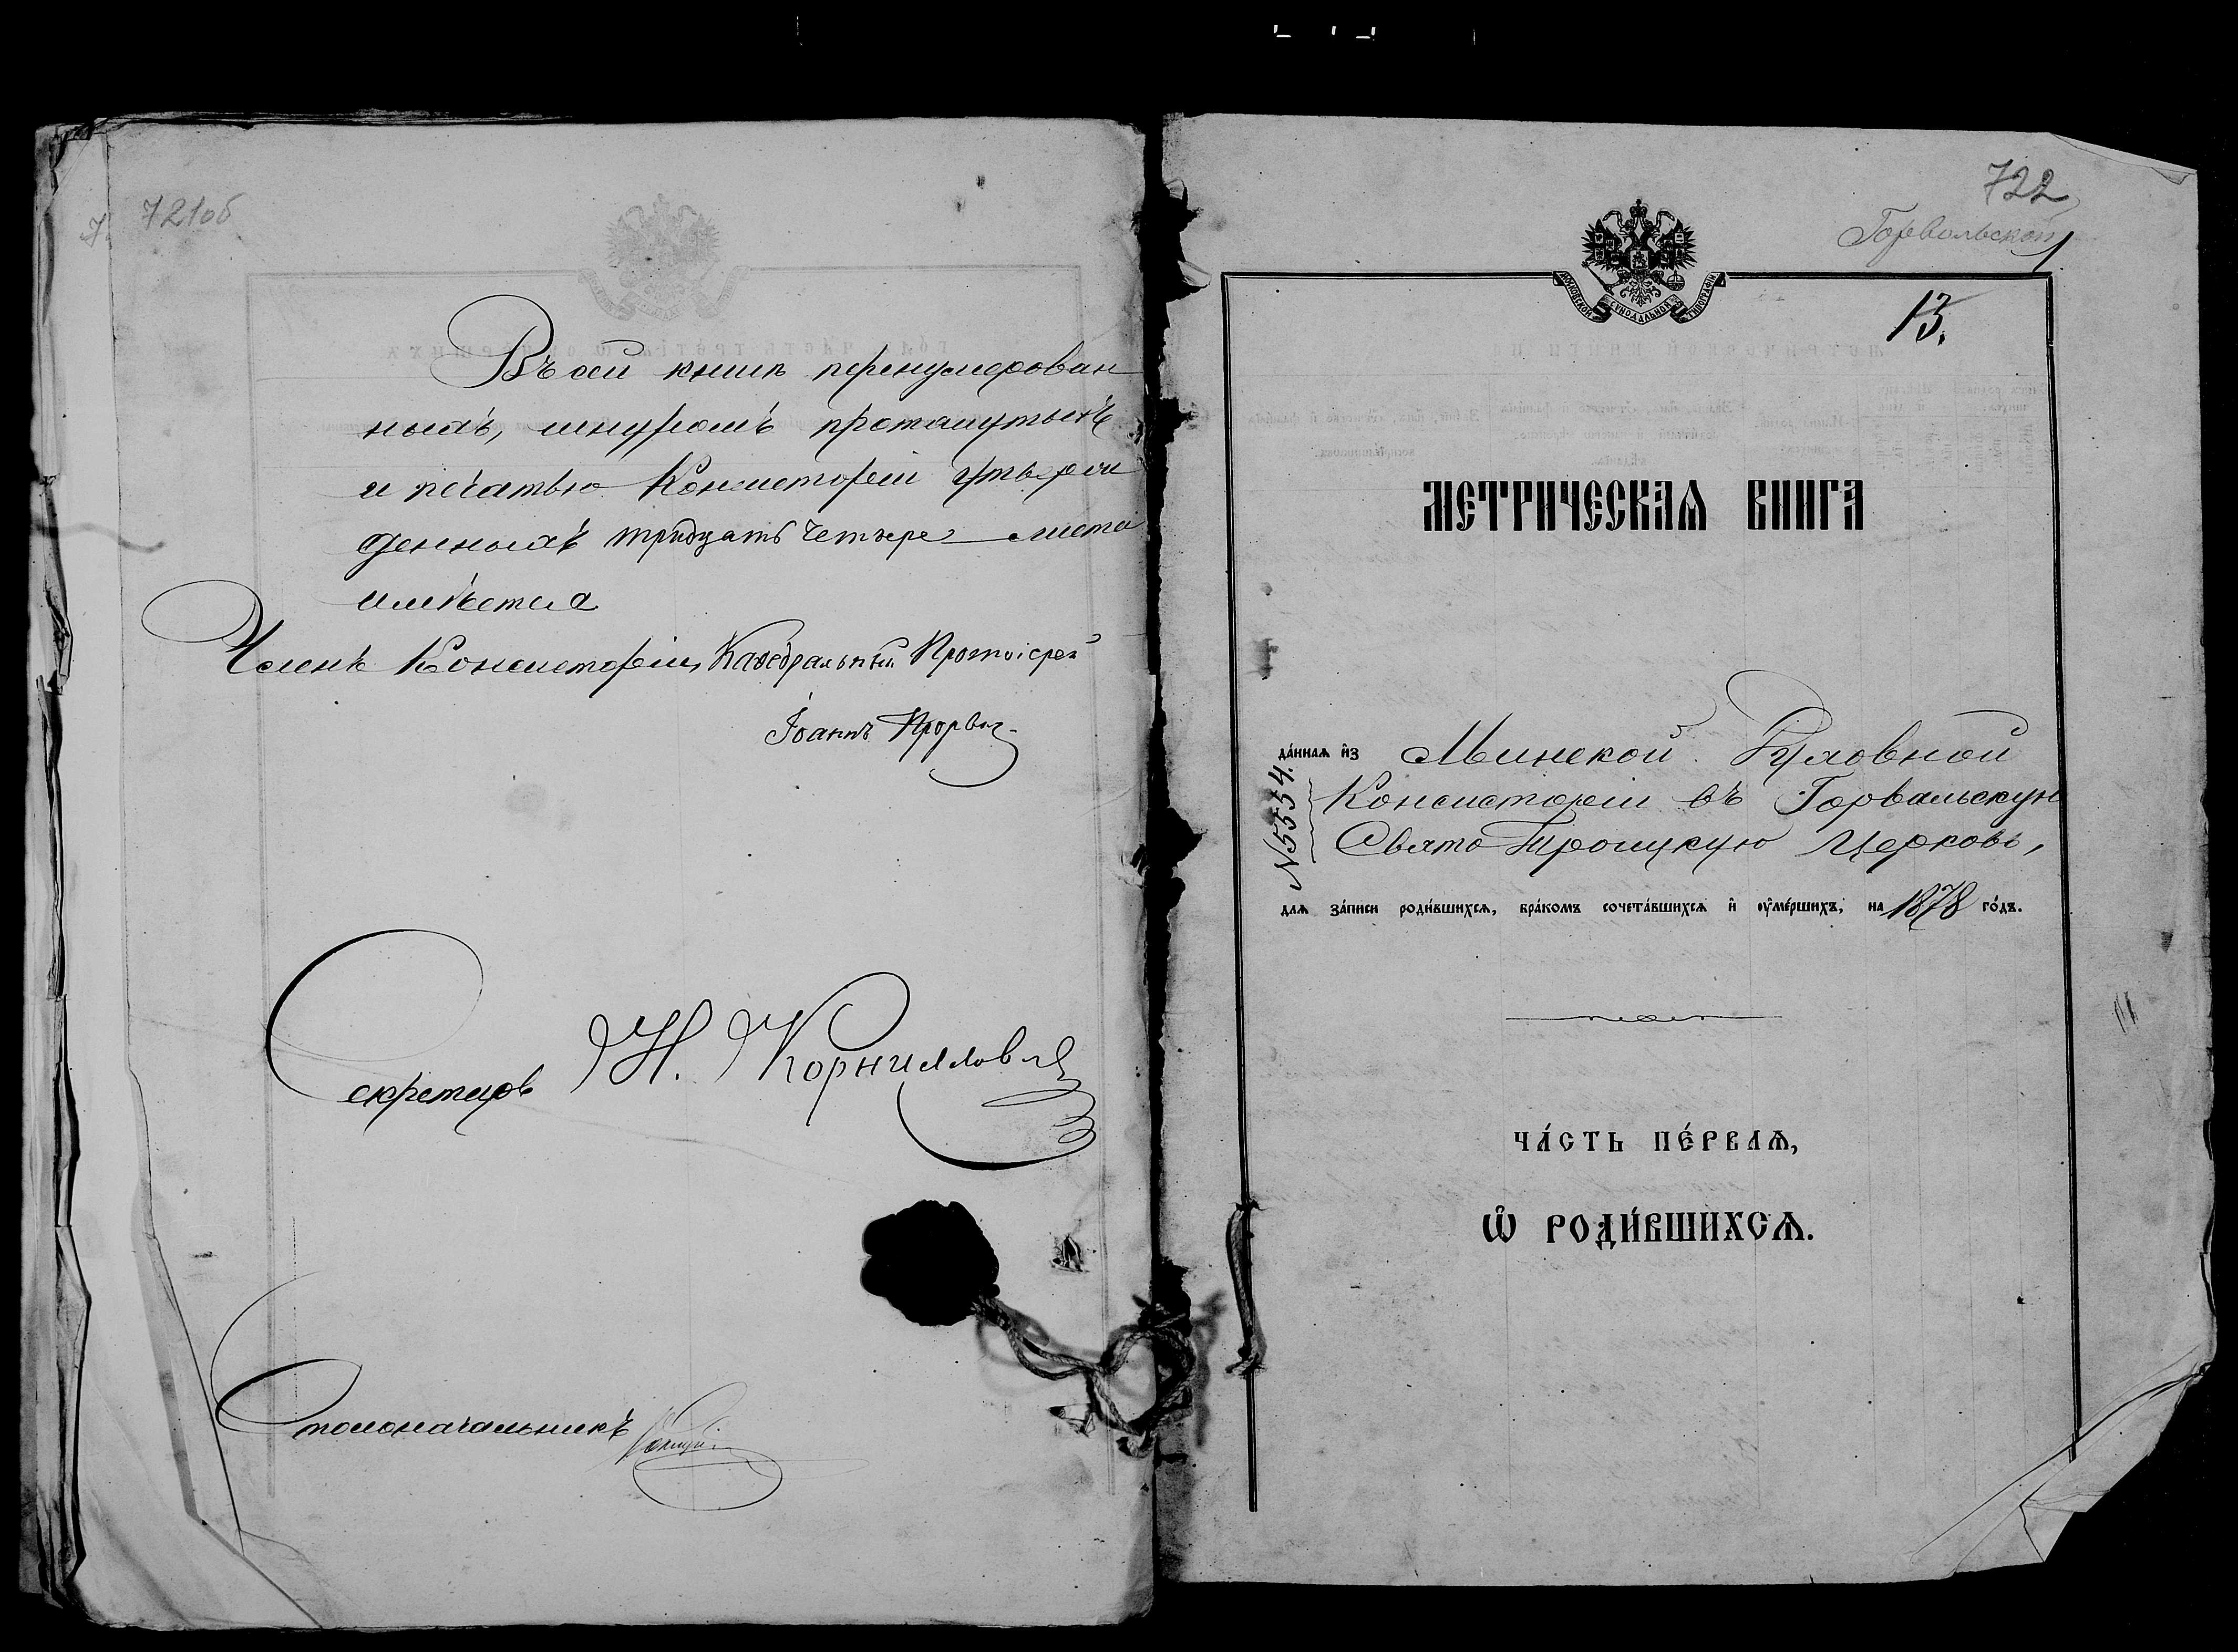 721об
Въ сей книгѣ перенумерован
ныхъ, шнуромъ протянутыхъ
и печатью Консисторіи утверж
денныхъ тридцать четыре листа
имѣется
Членъ Консисторіи, Каѳедральный Протоіерей
Іоаннъ
Секретарь Н. Корниловъ
Столоначальникъ
722
Горвольской
МОСКОВСКОЙ СУНОДАЛЬНОЙ ТИПОГРАФІИ
13.
МЕТРИЧЕСКАѦ КНИГА
да́ннаѧ и҆з Минской Духовной
Консисторіи въ Горвальскую
Свято Троицкую Церковь,
№5554.
длѧ за́писи роди́вшихсѧ, бра́комъ сочета́вшихсѧ и҆ ᲂу҆ме́ршихъ, на 1878 го́дъ.
ЧА́СТЬ ПЕ́РВАѦ,
Ѽ РОДИ́ВШИХСѦ.